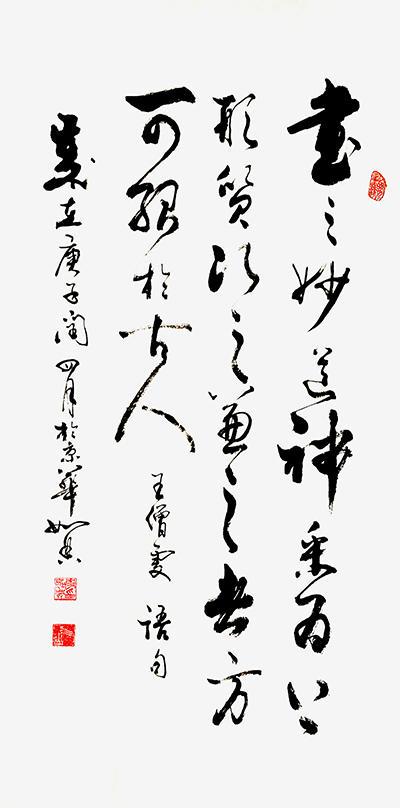 書之妙道神采為上
形質次之兼之者方
可紹於古人
王僧虔語句
歲在庚子閏四月於京華